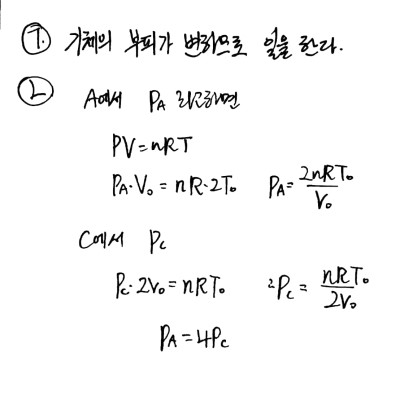 ㄱ. 기체의 부피가 변하므로 일을 한다.
ㄴ A에서 P_A 라고하면
PV=nRT
P_A·V₀ = nR·2T₀  P_A = 2nRT₀/V₀
C에서 P_C
P_C·2V₀ = nRT₀  P_C = nRT₀/2V₀
P_A = 4P_C